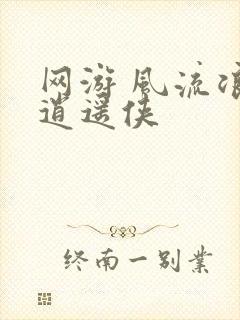 网游风流
逍遥侠
终南一别業